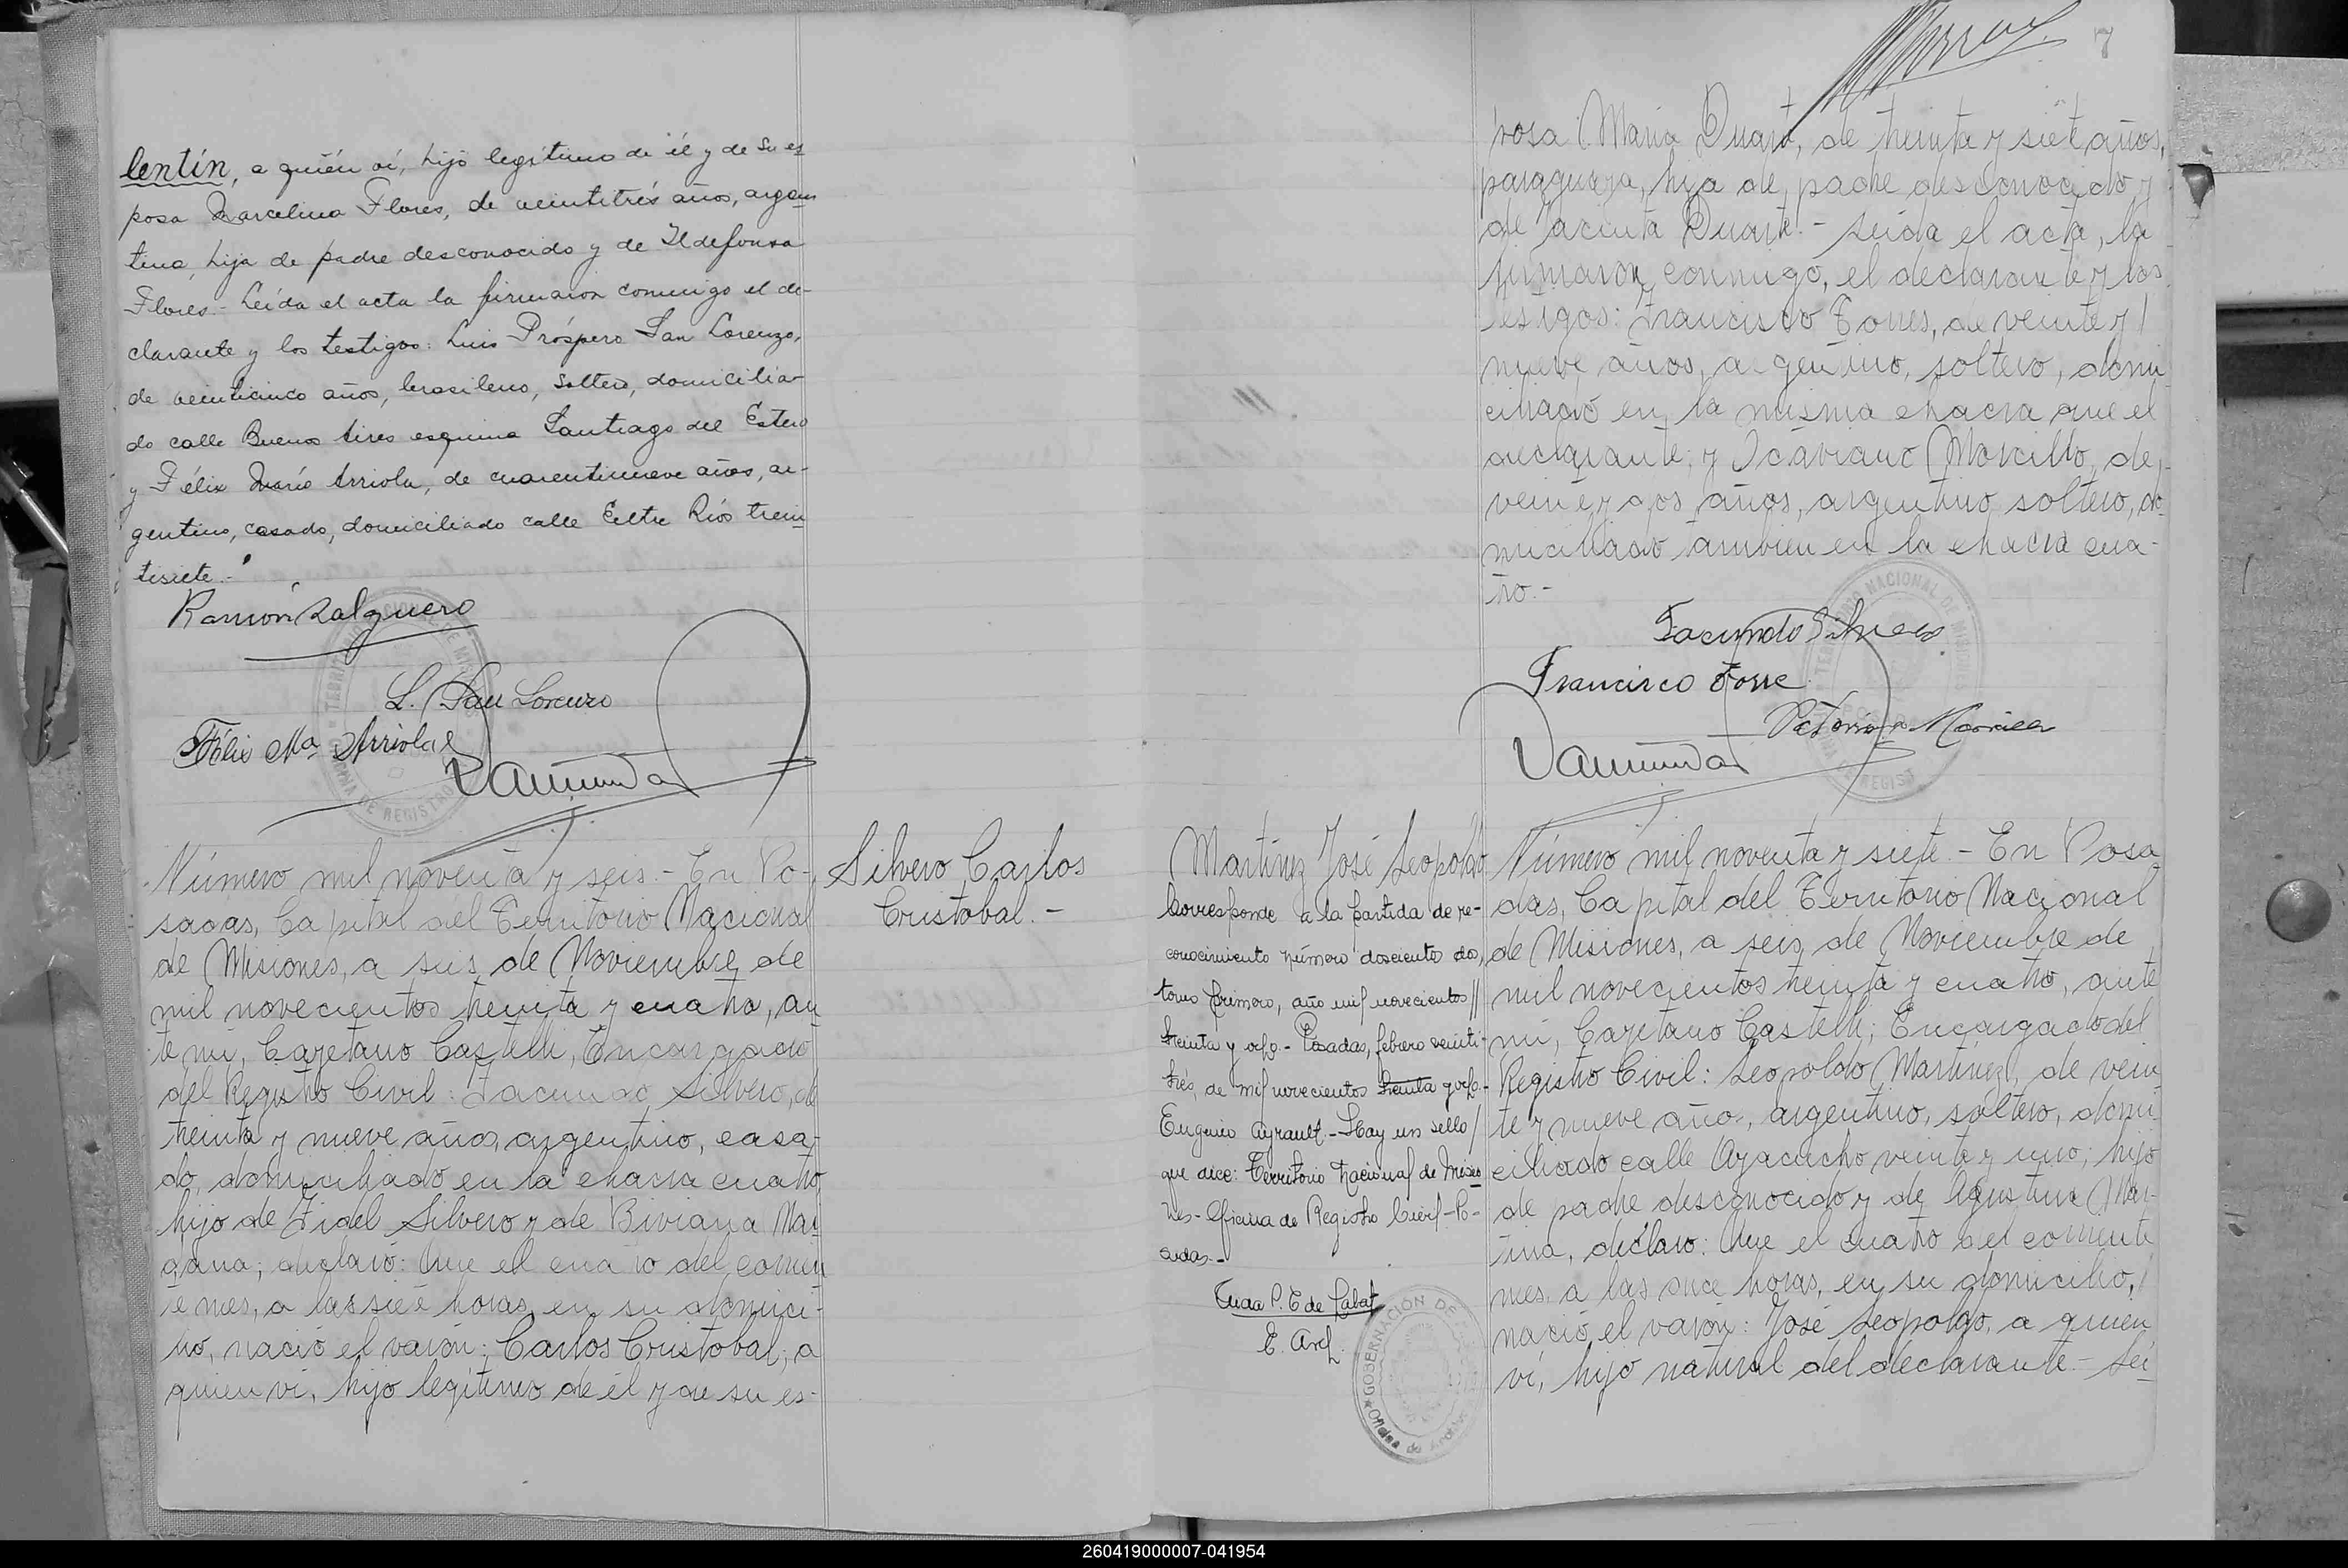 lentín, a quién ví, hijo legítimo de él y de su es
posa Marcelina Flores, de veintitrés años, argen
tina, hija de padre desconocido y de Ildefonsa
Flores.- Leída el acta la firmaron conmigo el de-
clarante y los testigos: Luis Próspero San Lorenzo,
de veinticinco años, brasileno, soltero, domicilia-
do calle Buenos Aires esquina Santiago del Estero
y Félix María Arriola, de cuarentinueve años, ar-
gentino, casado, domiciliado calle Entre Ríos trein
tisiete.-
Ramón Salguero
L. San Lorenzo
Félix Ma. Arriola
Número mil noventa y seis.- En Po-
sadas, Capital del Territorio Nacional
de Misiones, a seis de Noviembre de
mil novecientos treinta y cuatro, an
te mi, Cayetano Castelli, Encargado
del Registro Civil: Facundo Silvero, de
treinta y nueve años, argentino, casa-
do, domiciliado en la chacra cuatro,
hijo de Fidel Silvero y de Biviana Mai
dana; declaró: Que el cuatro del corrien
te mes, a las siete horas, en su domici-
lio, nació el varón: Carlos Cristobal, a
quien ví, hijo legítimo de él y de su es-
Silvero Carlos
Cristobal.-
7
posa: María Duarte, de treinta y siete años,
paraguaya, hija de padre desconocido y
de Jacinta Duarte.- Leída el acta, la
firmaron conmigo, el declarante y los
testigos: Francisco Torres, de veinte y
nueve años, argentino, soltero, domi
ciliado en la misma chacra que el
declarante; y Octaviano Morcillo, de
veinte y dos años, argentino, soltero, do-
miciliado tambien en la chacra cua-
tro.-
Facundo Silvero
Francisco Torre
Martinez José Leopoldo
Corresponde a la partida de re-
conocimiento número doscientos dos,
tomo primero, año mil novecientos //
treinta y ocho.- Posadas, febrero veinti-
trés, de mil novecientos treinta y ocho.-
Eugenio Ayrault.- Hay un sello /
que dice: Territorio Nacional de Misio
nes- Oficina de Registro Civil- Po-
sadas.-
E. Arch.
GOBERNACIÓN DE
Número mil noventa y siete.- En Posa
das, Capital del Territorio Nacional
de Misiones, a seis de Noviembre de
mil novecientos treinta y cuatro, ante
mi, Cayetano Castelli, Encargado del
Registro Civil: Leopoldo Martinez, de vein
te y nueve años, argentino, soltero, domi
ciliado calle Ayacucho veinte y uno; hijo
de padre desconocido y de Agustina Mar-
tina, declaro: Que el cuatro del corriente
mes, a las once horas, en su domicilio,
nació el varón: José Leopoldo, a quien
ví, hijo natural del declarante.- Lei
260419000007-041954